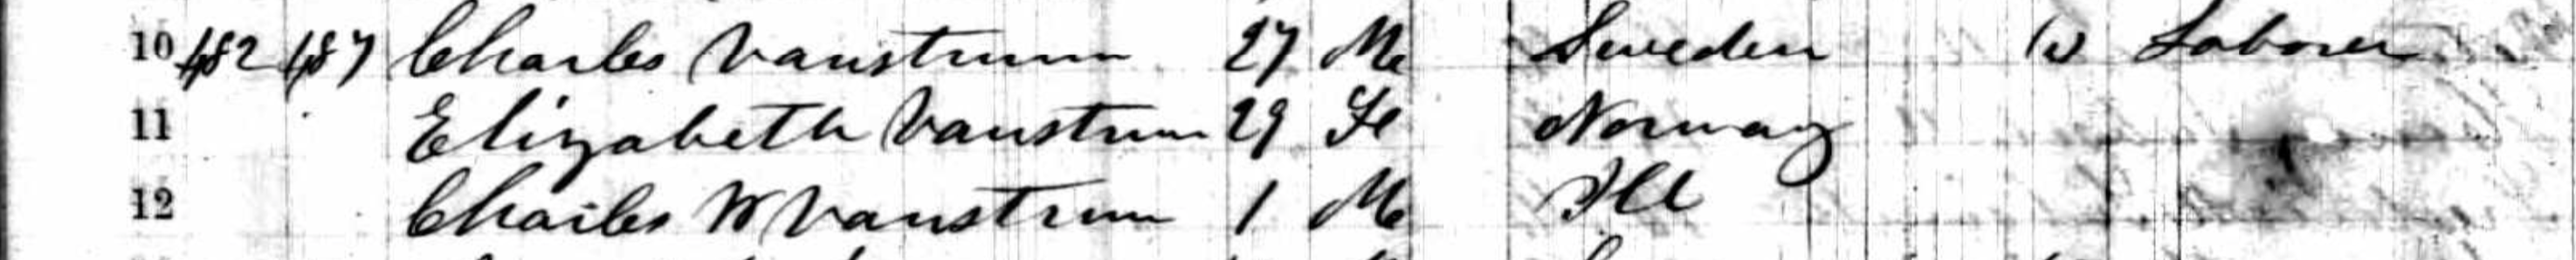 10 482 487 Charles Vanstrum 27 Me Sweden W Laborer
11 Elizabeth Vanstrum 29 Fe Norway
12 Charles W Vanstrum 1 Me Ill